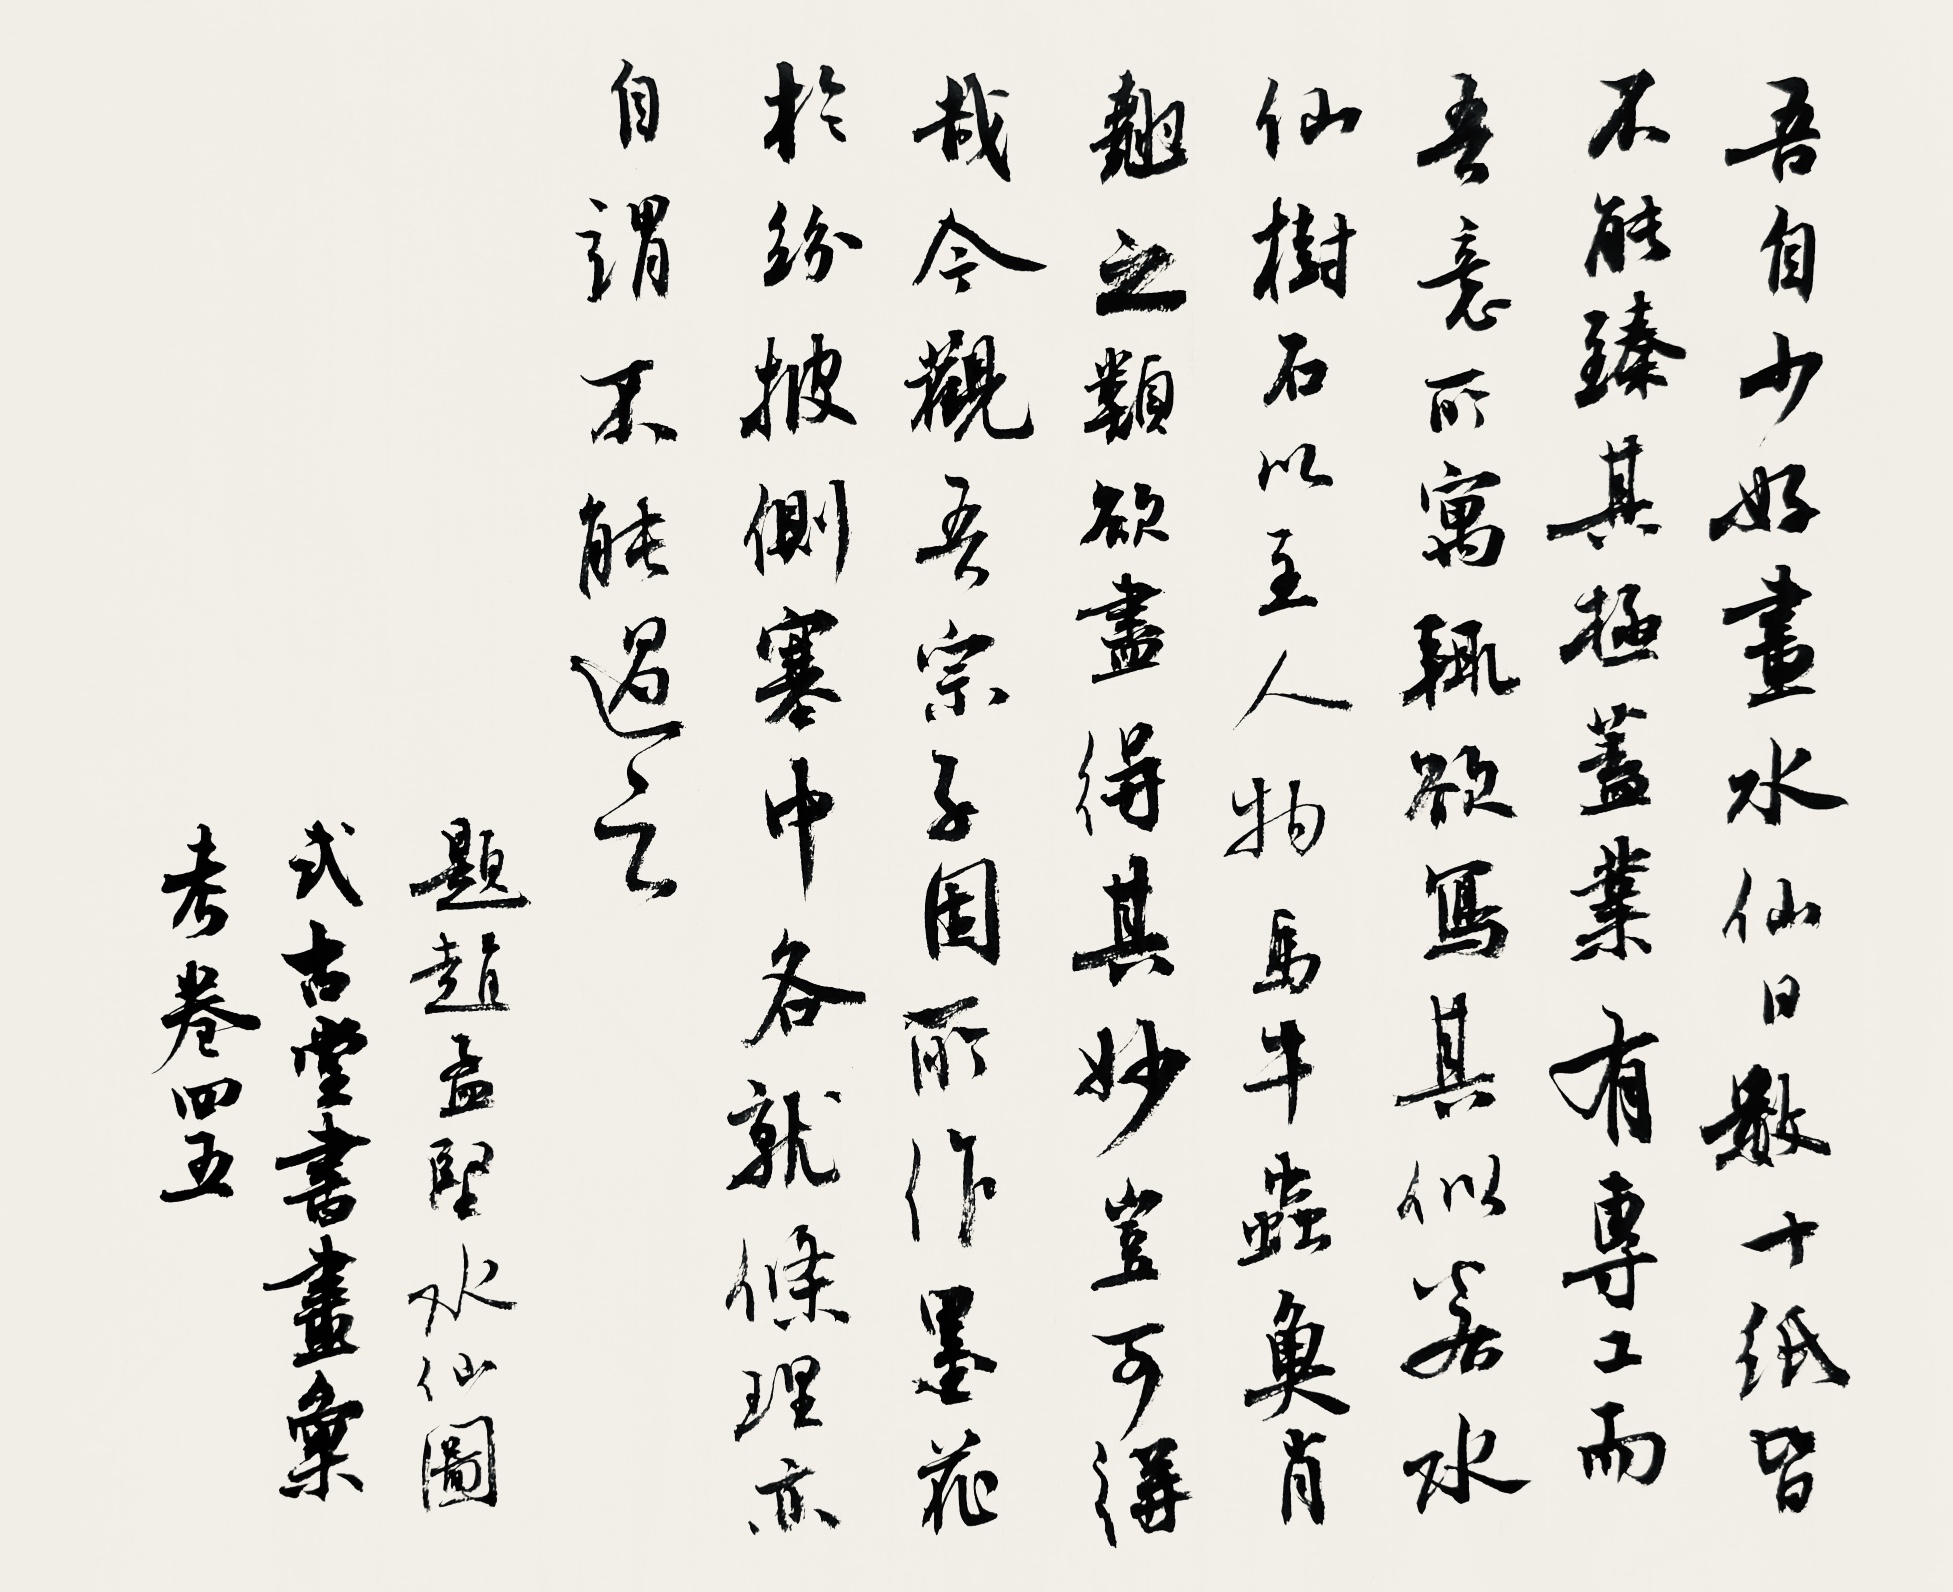 吾自少好畫水仙日數十紙皆
不能臻其極蓋業有專工而
吾意所寓輒欲寫其似若水
仙樹石以至人物馬牛蟲魚肖
翹之類欲盡得其妙豈可得
哉今觀吾宗子固所作墨花
於紛披側塞中各就條理亦
自謂不能過云
題趙孟堅水仙圖
式古堂書畫彙
考卷四五